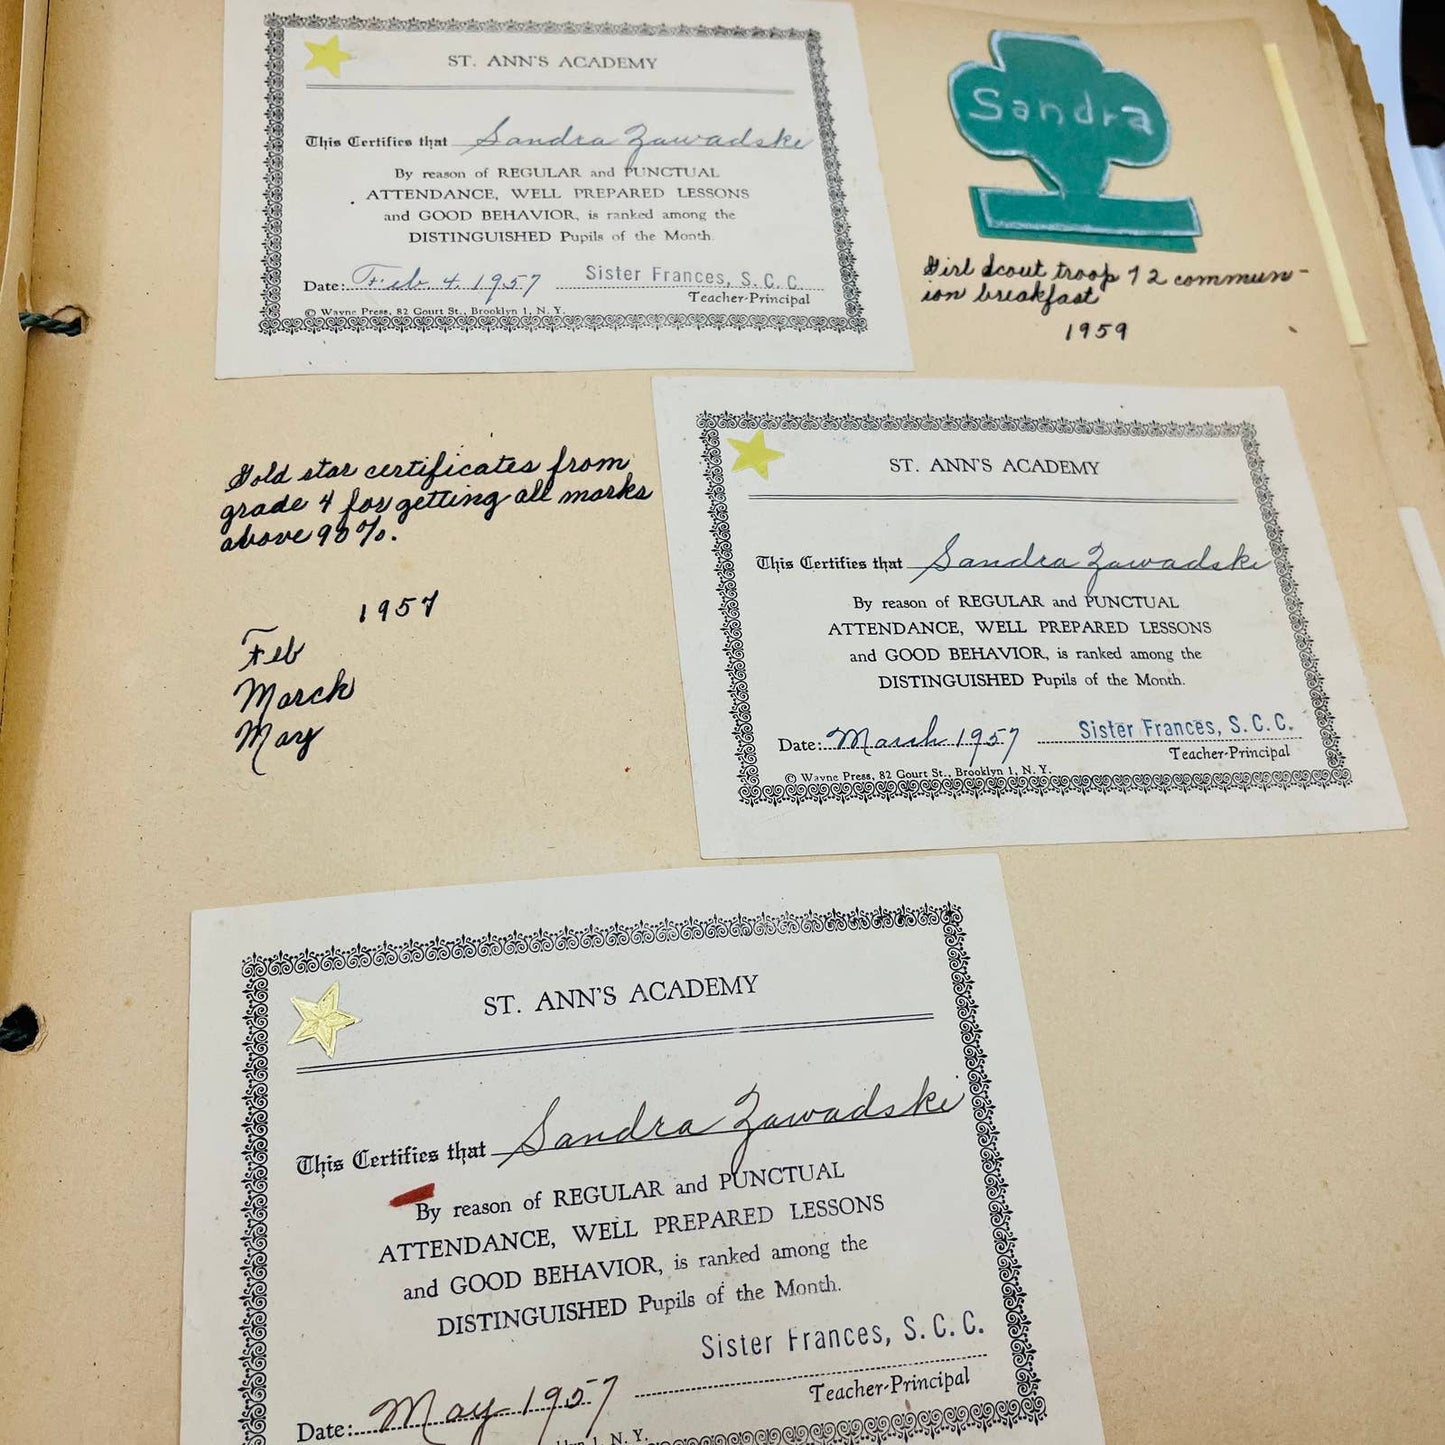 ST. ANN'S ACADEMY
This Certifies that Sandra Zawadski
By reason of REGULAR and PUNCTUAL
ATTENDANCE, WELL PREPARED LESSONS
and GOOD BEHAVIOR, is ranked among the
DISTINGUISHED Pupils of the Month.
Date: Feb 4, 1957 Sister Frances, S. C. C.
Teacher-Principal
© Wayne Press, 82 Court St., Brooklyn 1, N. Y.
Sandra
Girl Scout troop 72 commun-
ion breakfast
1959
Gold star certificates from
grade 4 for getting all marks
above 90%.
1957
Feb
March
May
ST. ANN'S ACADEMY
This Certifies that Sandra Zawadski
By reason of REGULAR and PUNCTUAL
ATTENDANCE, WELL PREPARED LESSONS
and GOOD BEHAVIOR, is ranked among the
DISTINGUISHED Pupils of the Month.
Date: March 1957 Sister Frances, S. C. C.
Teacher-Principal
© Wayne Press, 82 Court St., Brooklyn 1, N. Y.
ST. ANN'S ACADEMY
This Certifies that Sandra Zawadski
By reason of REGULAR and PUNCTUAL
ATTENDANCE, WELL PREPARED LESSONS
and GOOD BEHAVIOR, is ranked among the
DISTINGUISHED Pupils of the Month.
Sister Frances, S. C. C.
Date: May 1957 Teacher-Principal
1, N. Y.